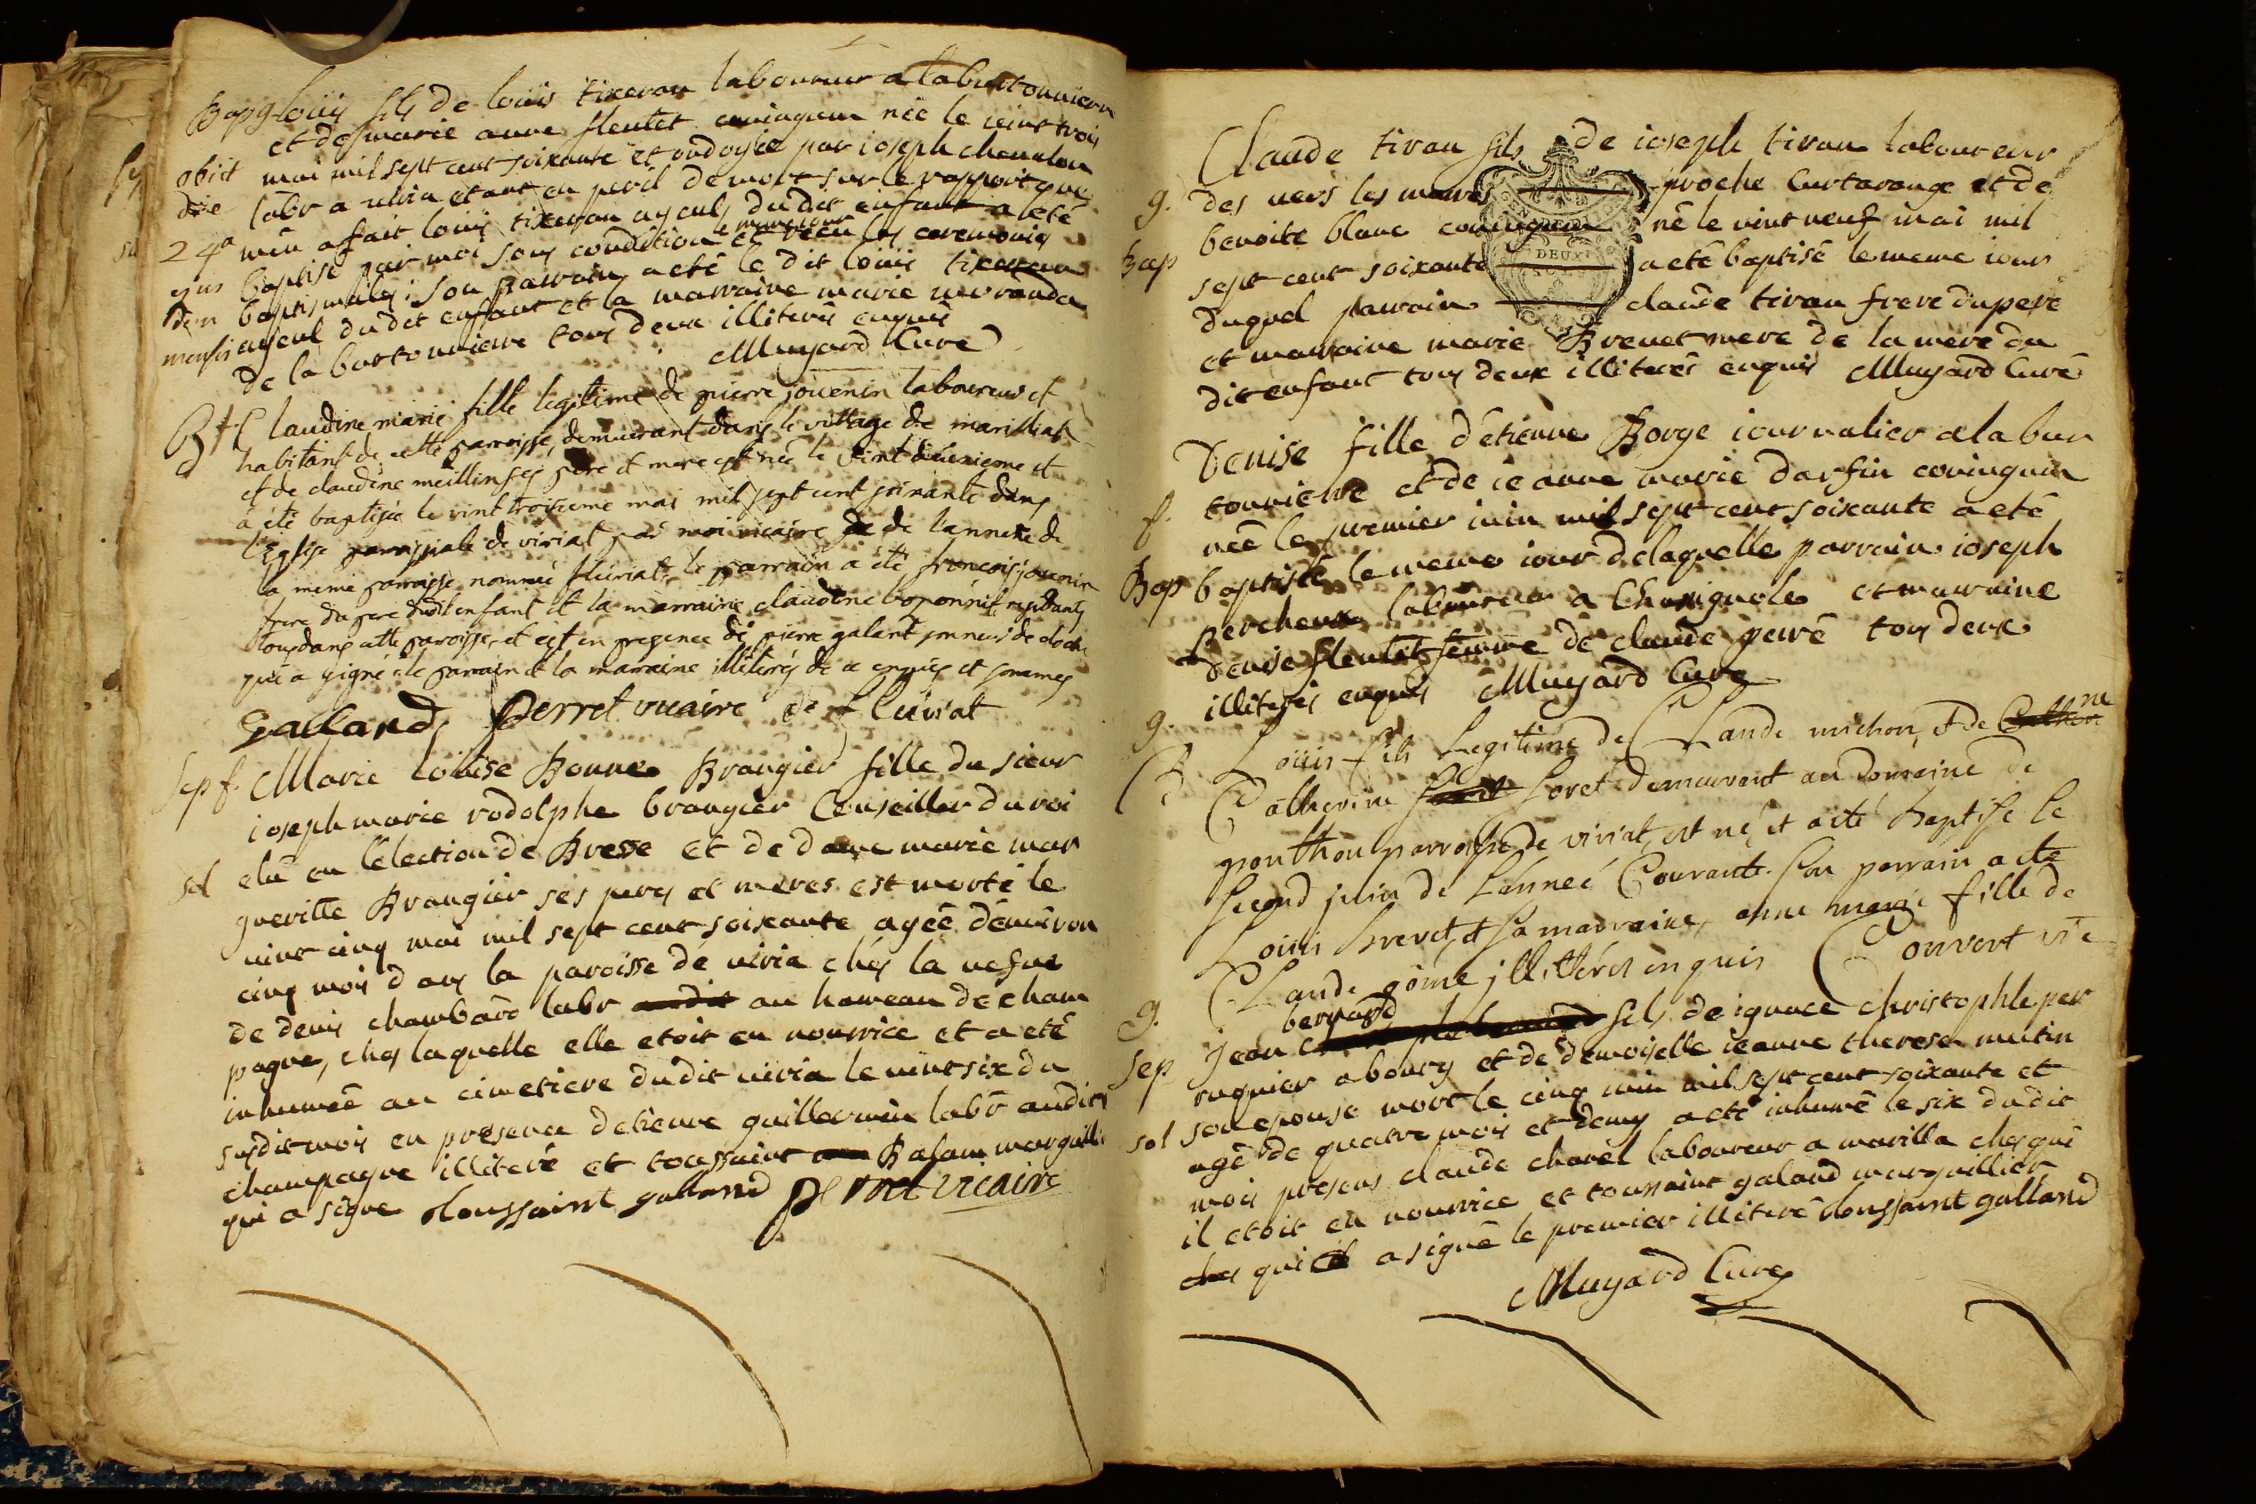 Bap g Loüis fils de loüis tixeran laboureur a la burtonniere
et de marie anne fleutet coniugum née le vint trois
obiit mai mil sept cent soixante et ondoyée par ioseph chevalon
die labr a viria etant en peril de mort sur le rapport que
24a m'en a fait loüis tixeran ayeul dudit enfant a eté
ejus baptisé par moi sous condition et reçu les ceremonies
dem baptismales; son parrain a eté le dit loüis tixeran
mensis ayeul dudit enfant et la marraine marie
de la burtonniere tous deux illiterés enquis
Muyard Curé
B f Claudine marie fille legitime de pierre jouenin laboureur et
habitant de cette parroisse, demeurant dans le village de marilliat
et de claudine meillin ses pere et mere est née le vint deuxieme et
a été baptisée le vint troisieme mai mil sept cent soixante dans
l'Eglise parroissiale de viriat par moi vicaire de l'annexe de
la meme parroisse nommée fluriat, le parrain a été françois jouenin
frere du pere dudit enfant et la marraine claudine residants
tous dans cette paroisse, et cest en presence de pierre galant sonneur de cloche
qui a signé le parrain et la marraine illiterés de ce enquis et sommés
Galland, Perret vicaire de fluriat
Sep f. Marie Loüise Bonne Brangier fille du sieur
ioseph marie rodolphe brangier Conseiller du roi
sol elû en l'election de Bresse et de dame marie mar
gueritte Brangier ses peres et meres est morte le
vint cinq mai mil sept cent soixante agée d'environ
cinq mois dans la paroisse de viria chés la vefve
de denis chambard labr au hameau de cham
pagne, chés laquelle elle etoit en nourrice et a eté
inhumée au cimetiere dudit viria le vint six du
susdit mois en presence d'etienne guillermin labr audit
champagne illiteré et toussaint Balan marguillier
qui a signé toussaint galland Perret vicaire
Claude tiran fils de ioseph tiran laboureur
g. des vers les mares proche Curtarange et de
Bap benoite blanc coniugum né le vint neuf mai mil
sept cent soixante a eté baptisé le meme iour
duquel parrain claude tiran frere du pere
et marraine marie Brevet mere de la mere du
dit enfant tous deux illiterés enquis Muyard Curé
Denise fille d'étienne Borge iournalier a la bur
f. tonniere et de ieanne marie darfin coniugum
née le premier iuin mil sept cent soixante a eté
Bap baptisée le meme iour de laquelle parrain ioseph
Percheux laboureur a Chavignole et marraine
denise fleutet femme de claude perré tous deux
illiterés enquis Muyard Curé
g. Loüis fils Legitime de Claude michon, & de
B. Catherine Loret demeurant au Domaine de
gonthon parroisse de viriat, est né et a eté Baptisé le
second juin de Lannée Courante. Son parrain a eté
Loüis brevet, et sa marraine, anne marie fille de
Claude gome jllitterés enquis Convert vic
g. bernard
Sep Jean fils de ignace christophle per
ruquier a bourg et de demoiselle ieanne therese mutin
son epouse mort le cinq iuin mil sept cent soixante et
sol agé de quatre mois et demy a eté inhumé le six dudit
mois presens claude charel laboureur a marilla chés qui
il etoit en nourrice et toussaint galand marguillier
qui a signé le premier illiteré toussaint galland
Muyard Curé